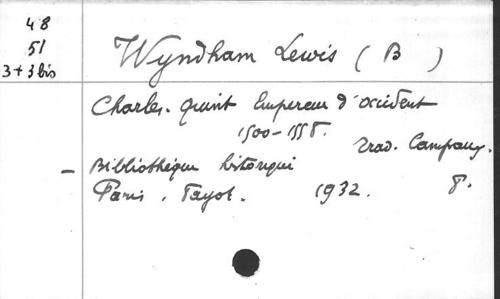 48
51
3+3bis
Wyndham Lewis (B)
Charles-Quint Empereur d'occident
1500-1558.
Trad. Campaux.
- Bibliothèque historique
Paris, Payot. 1932. 8.